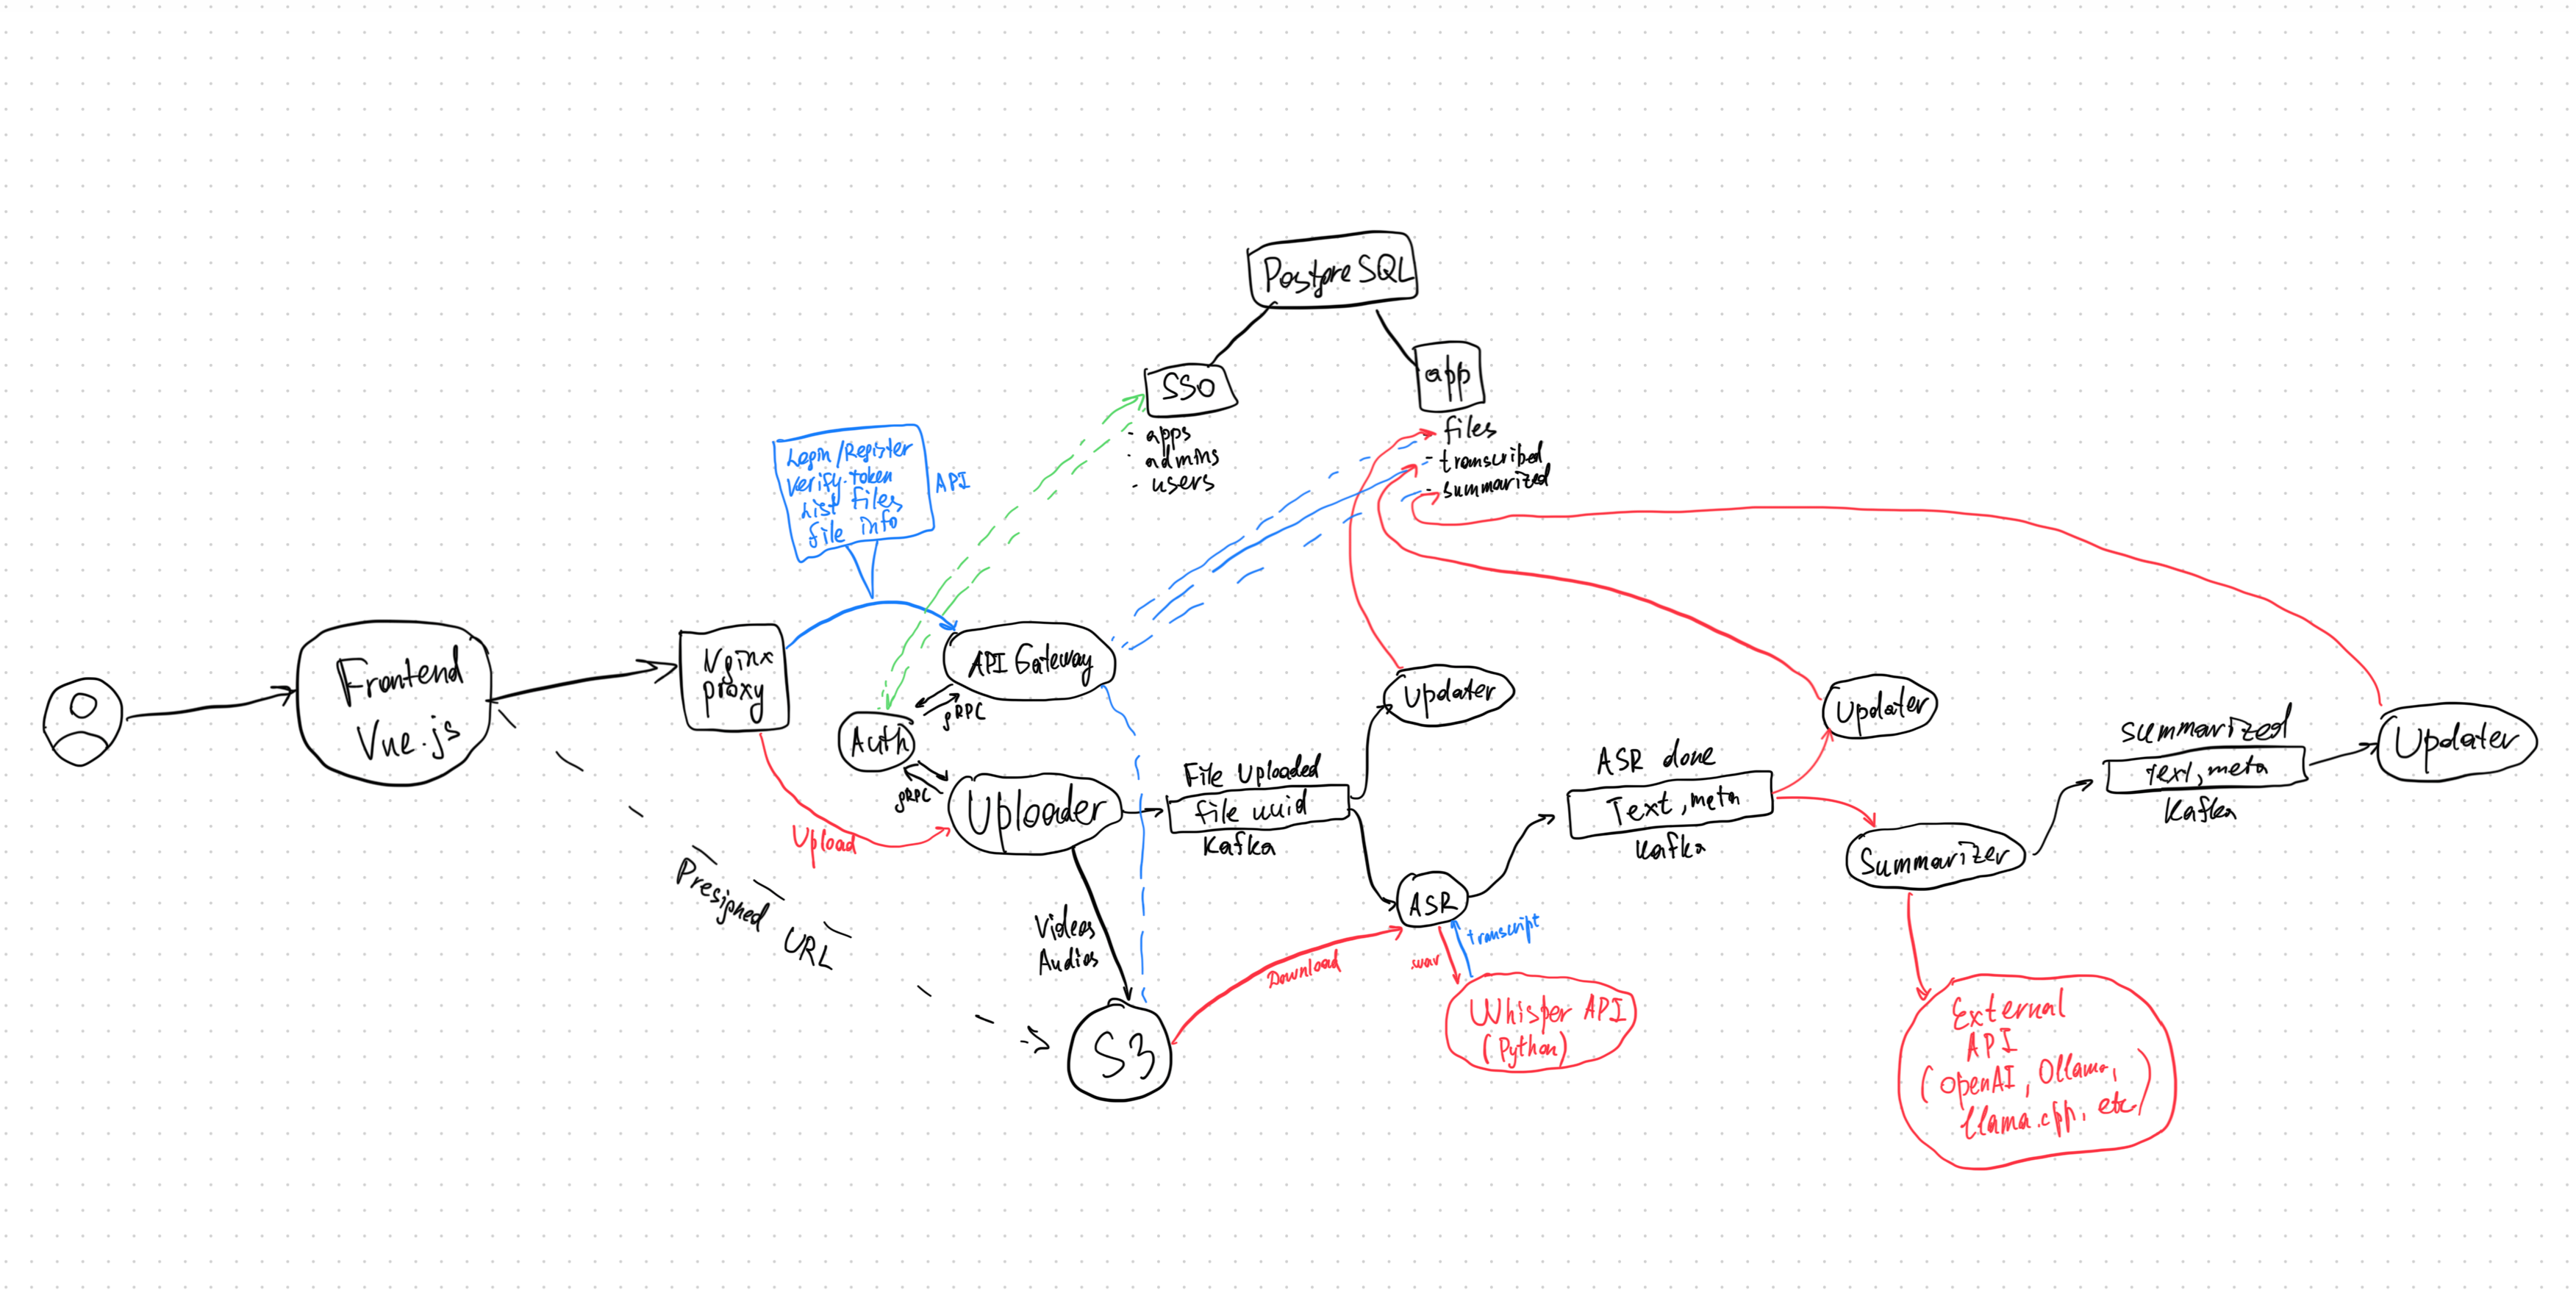 PostgreSQL
SSO
- apps
- admins
- users
app
- files
- transcribed
- summarized
Login/Register
verify.token
List files
file info
API
Frontend
Vue.js
Nginx
proxy
API Gateway
gRPC
Auth
gRPC
Uploader
Upload
Presigned URL
Videos
Audios
S3
File Uploaded
file uuid
Kafka
Updater
ASR
Download
.wav
transcript
Whisper API
(Python)
ASR done
Text, meta
Kafka
Updater
Summarizer
External
API
(OpenAI, Ollama,
llama.cpp, etc)
Summarized
Text, meta
Kafka
Updater